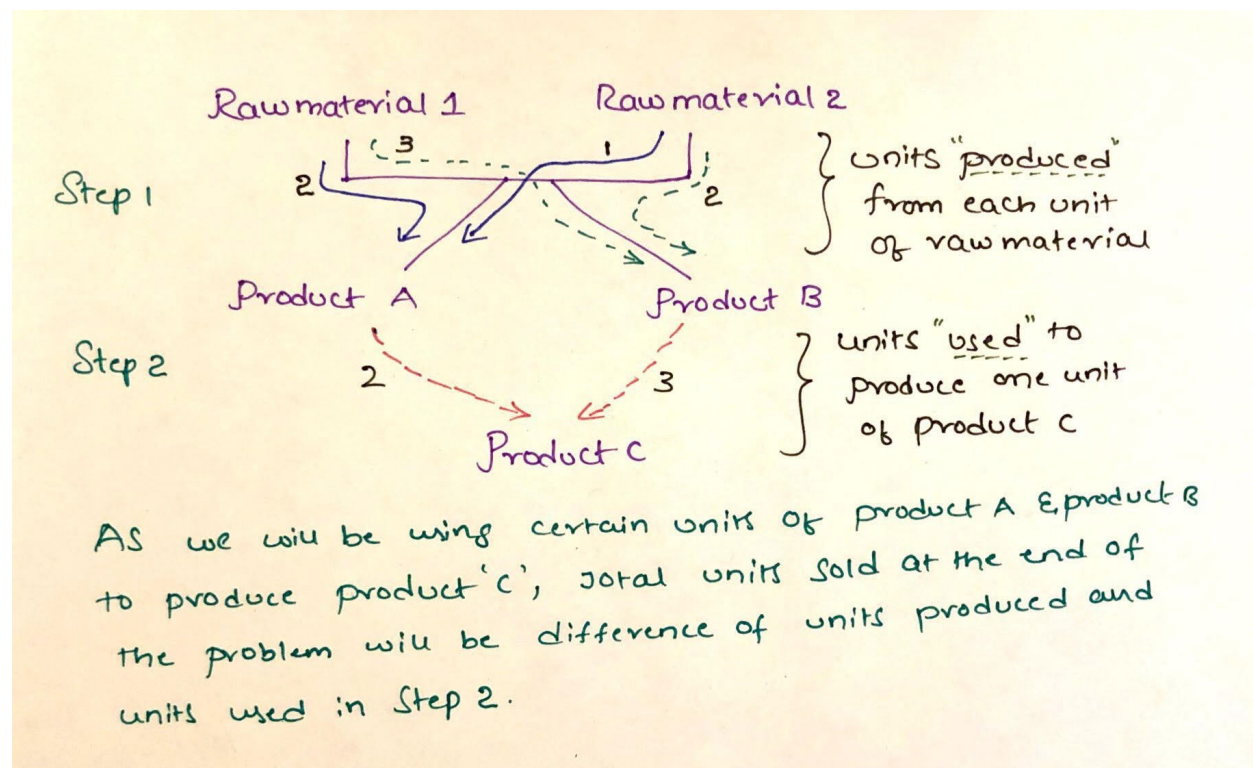 Raw material 1
Raw material 2
3
1
2
2
Step 1
units "produced"
from each unit
of raw material
Product A
Product B
Step 2
2
3
units "used" to
produce one unit
of product C
Product C
As we will be using certain units of product A & product B
to produce product 'C', Total units sold at the end of
the problem will be difference of units produced and
units used in Step 2.